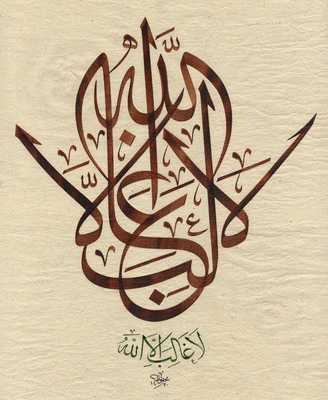 لا غالب إلا الله
لَا غَالِبَ إِلَّا اللَّه